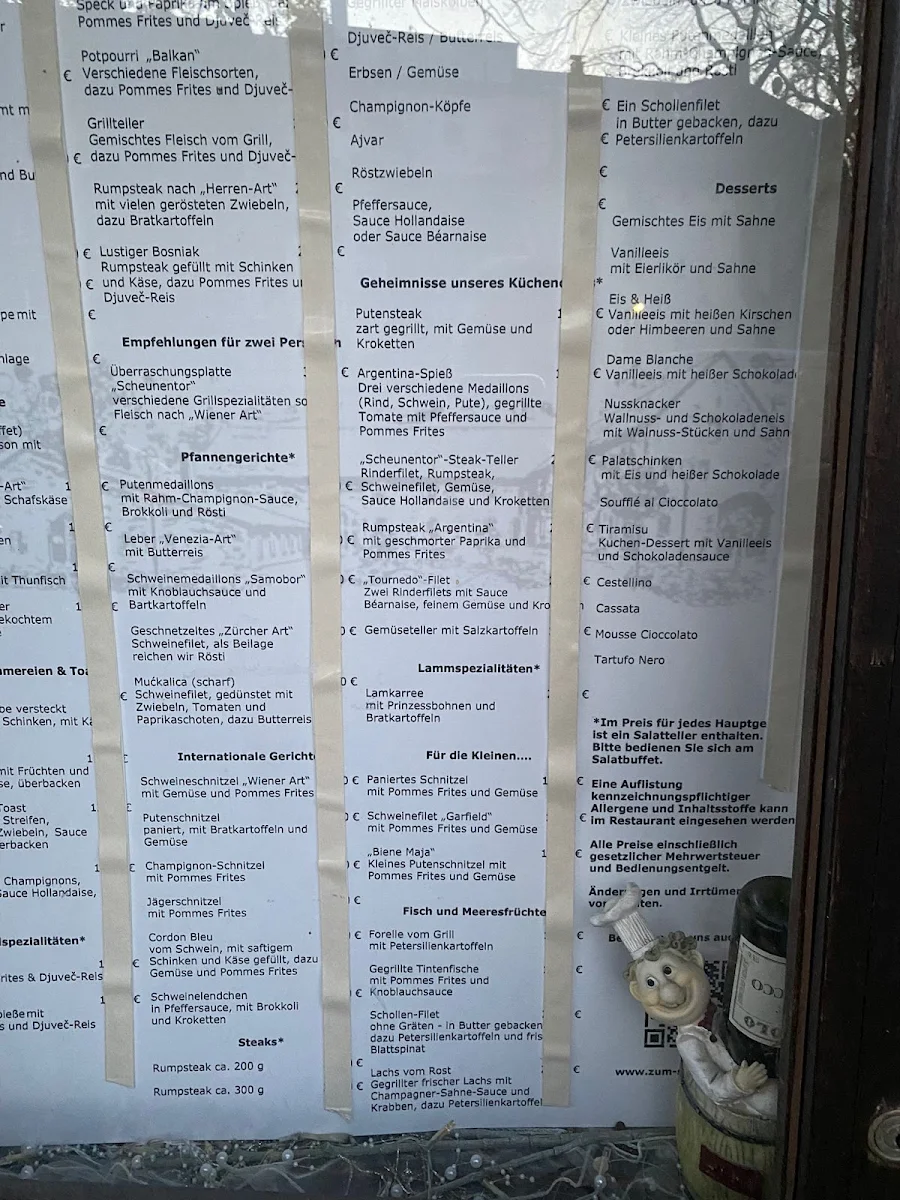 mt m
nd Bu
pe mit
nlage
ffet)
son mit
-Art" 1
Schafskäse
1
en
1
it Thunfisch
er 1
ekochtem
mmereien & Toa
be versteckt
Schinken, mit Kä
1
mit Früchten und
se, überbacken
Toast 1
Streifen,
Zwiebeln, Sauce
erbacken
1
Champignons,
Sauce Hollandaise,
lspezialitäten*
1
rites & Djuveč-Reis
1
ieße mit
s und Djuveč-Reis
Speck und Paprika am Spieß
Pommes Frites und Djuveč-Reis
Potpourri „Balkan"
€ Verschiedene Fleischsorten,
dazu Pommes Frites und Djuveč-
Grillteller
Gemischtes Fleisch vom Grill,
€ dazu Pommes Frites und Djuveč-
Rumpsteak nach „Herren-Art"
mit vielen gerösteten Zwiebeln,
dazu Bratkartoffeln
€ Lustiger Bosniak
Rumpsteak gefüllt mit Schinken
€ und Käse, dazu Pommes Frites u
Djuveč-Reis
€
Empfehlungen für zwei Pers
€
Überraschungsplatte
„Scheunentor"
verschiedene Grillspezialitäten so
Fleisch nach „Wiener Art"
€
Pfannengerichte*
€ Putenmedaillons
mit Rahm-Champignon-Sauce,
Brokkoli und Rösti
€
Leber „Venezia-Art"
mit Butterreis
€
Schweinemedaillons „Samobor"
mit Knoblauchsauce und
€ Bartkartoffeln
Geschnetzeltes „Zürcher Art"
Schweinefilet, als Beilage
reichen wir Rösti
Mućkalica (scharf)
€ Schweinefilet, gedünstet mit
Zwiebeln, Tomaten und
Paprikaschoten, dazu Butterreis
€ Internationale Gericht
Schweineschnitzel „Wiener Art"
mit Gemüse und Pommes Frites
€
Putenschnitzel
paniert, mit Bratkartoffeln und
Gemüse
€ Champignon-Schnitzel
mit Pommes Frites
Jägerschnitzel
mit Pommes Frites
Cordon Bleu
vom Schwein, mit saftigem
€ Schinken und Käse gefüllt, dazu
Gemüse und Pommes Frites
€ Schweinelendchen
in Pfeffersauce, mit Brokkoli
und Kroketten
Steaks*
Rumpsteak ca. 200 g
Rumpsteak ca. 300 g
Gegrillter Maiskolben
Djuveč-Reis / Butterreis
€
Erbsen / Gemüse
Champignon-Köpfe
€
Ajvar
Röstzwiebeln
€
Pfeffersauce,
Sauce Hollandaise
oder Sauce Béarnaise
€
Geheimnisse unseres Küchenc
Putensteak 1
zart gegrillt, mit Gemüse und
Kroketten
€ Argentina-Spieß 1
Drei verschiedene Medaillons
(Rind, Schwein, Pute), gegrillte
Tomate mit Pfeffersauce und
Pommes Frites
„Scheunentor"-Steak-Teller 2
Rinderfilet, Rumpsteak,
€ Schweinefilet, Gemüse,
Sauce Hollandaise und Kroketten
Rumpsteak „Argentina"
0 € mit geschmorter Paprika und
Pommes Frites
0 € „Tournedo"-Filet
Zwei Rinderfilets mit Sauce
Béarnaise, feinem Gemüse und Kro
0 € Gemüseteller mit Salzkartoffeln
Lammspezialitäten*
0 €
Lamkarree
mit Prinzessbohnen und
Bratkartoffeln
Für die Kleinen....
0 € Paniertes Schnitzel 1
mit Pommes Frites und Gemüse
0 € Schweinefilet „Garfield"
mit Pommes Frites und Gemüse
„Biene Maja" 1
0 € Kleines Putenschnitzel mit
Pommes Frites und Gemüse
€
Fisch und Meeresfrüchte
€ Forelle vom Grill
mit Petersilienkartoffeln
Gegrillte Tintenfische
mit Pommes Frites und
€ Knoblauchsauce
Schollen-Filet
ohne Gräten - in Butter gebacken
dazu Petersilienkartoffeln und fris
Blattspinat
€
Lachs vom Rost
€ Gegrillter frischer Lachs mit
Champagner-Sahne-Sauce und
Krabben, dazu Petersilienkartoffel
€ Kleines Putenmedaillon
mit Rahm-Champignon-Sauce,
€ Ein Schollenfilet
in Butter gebacken, dazu
€ Petersilienkartoffeln
€
Desserts
€
Gemischtes Eis mit Sahne
Vanilleeis
mit Eierlikör und Sahne
*
Eis & Heiß
€ Vanilleeis mit heißen Kirschen
oder Himbeeren und Sahne
Dame Blanche
€ Vanilleeis mit heißer Schokolad
Nussknacker
Wallnuss- und Schokoladeneis
mit Walnuss-Stücken und Sahn
€ Palatschinken
mit Eis und heißer Schokolade
Soufflé al Cioccolato
€ Tiramisu
Kuchen-Dessert mit Vanilleeis
und Schokoladensauce
€ Cestellino
Cassata
€ Mousse Cioccolato
Tartufo Nero
€
*Im Preis für jedes Hauptge
ist ein Salatteller enthalten.
Bitte bedienen Sie sich am
Salatbuffet.
€ Eine Auflistung
kennzeichnungspflichtiger
Allergene und Inhaltsstoffe kann
€ im Restaurant eingesehen werden
Alle Preise einschließlich
€ gesetzlicher Mehrwertsteuer
und Bedienungsentgelt.
Änderungen und Irrtümer
€
€
€
€ www.zum-